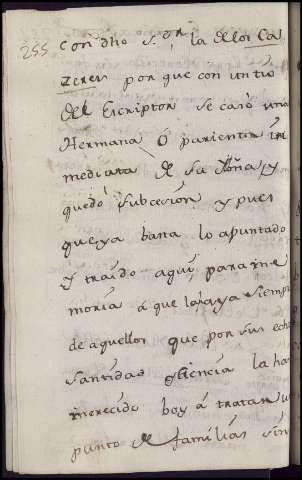 255
con dho s.or, la de los Ca
zeres por que con un tio
del Escriptor se caso una
Hermana ó parienta in
mediata de Sa Sria, y
quedó Subcesión y pues
que ya basta lo apuntado
y traído aquí, para me
moria á que haya siempre
de aquellos que por sus echos
Santidad y Ciencia la han
merecido boy á tratar un
punto de familias sin